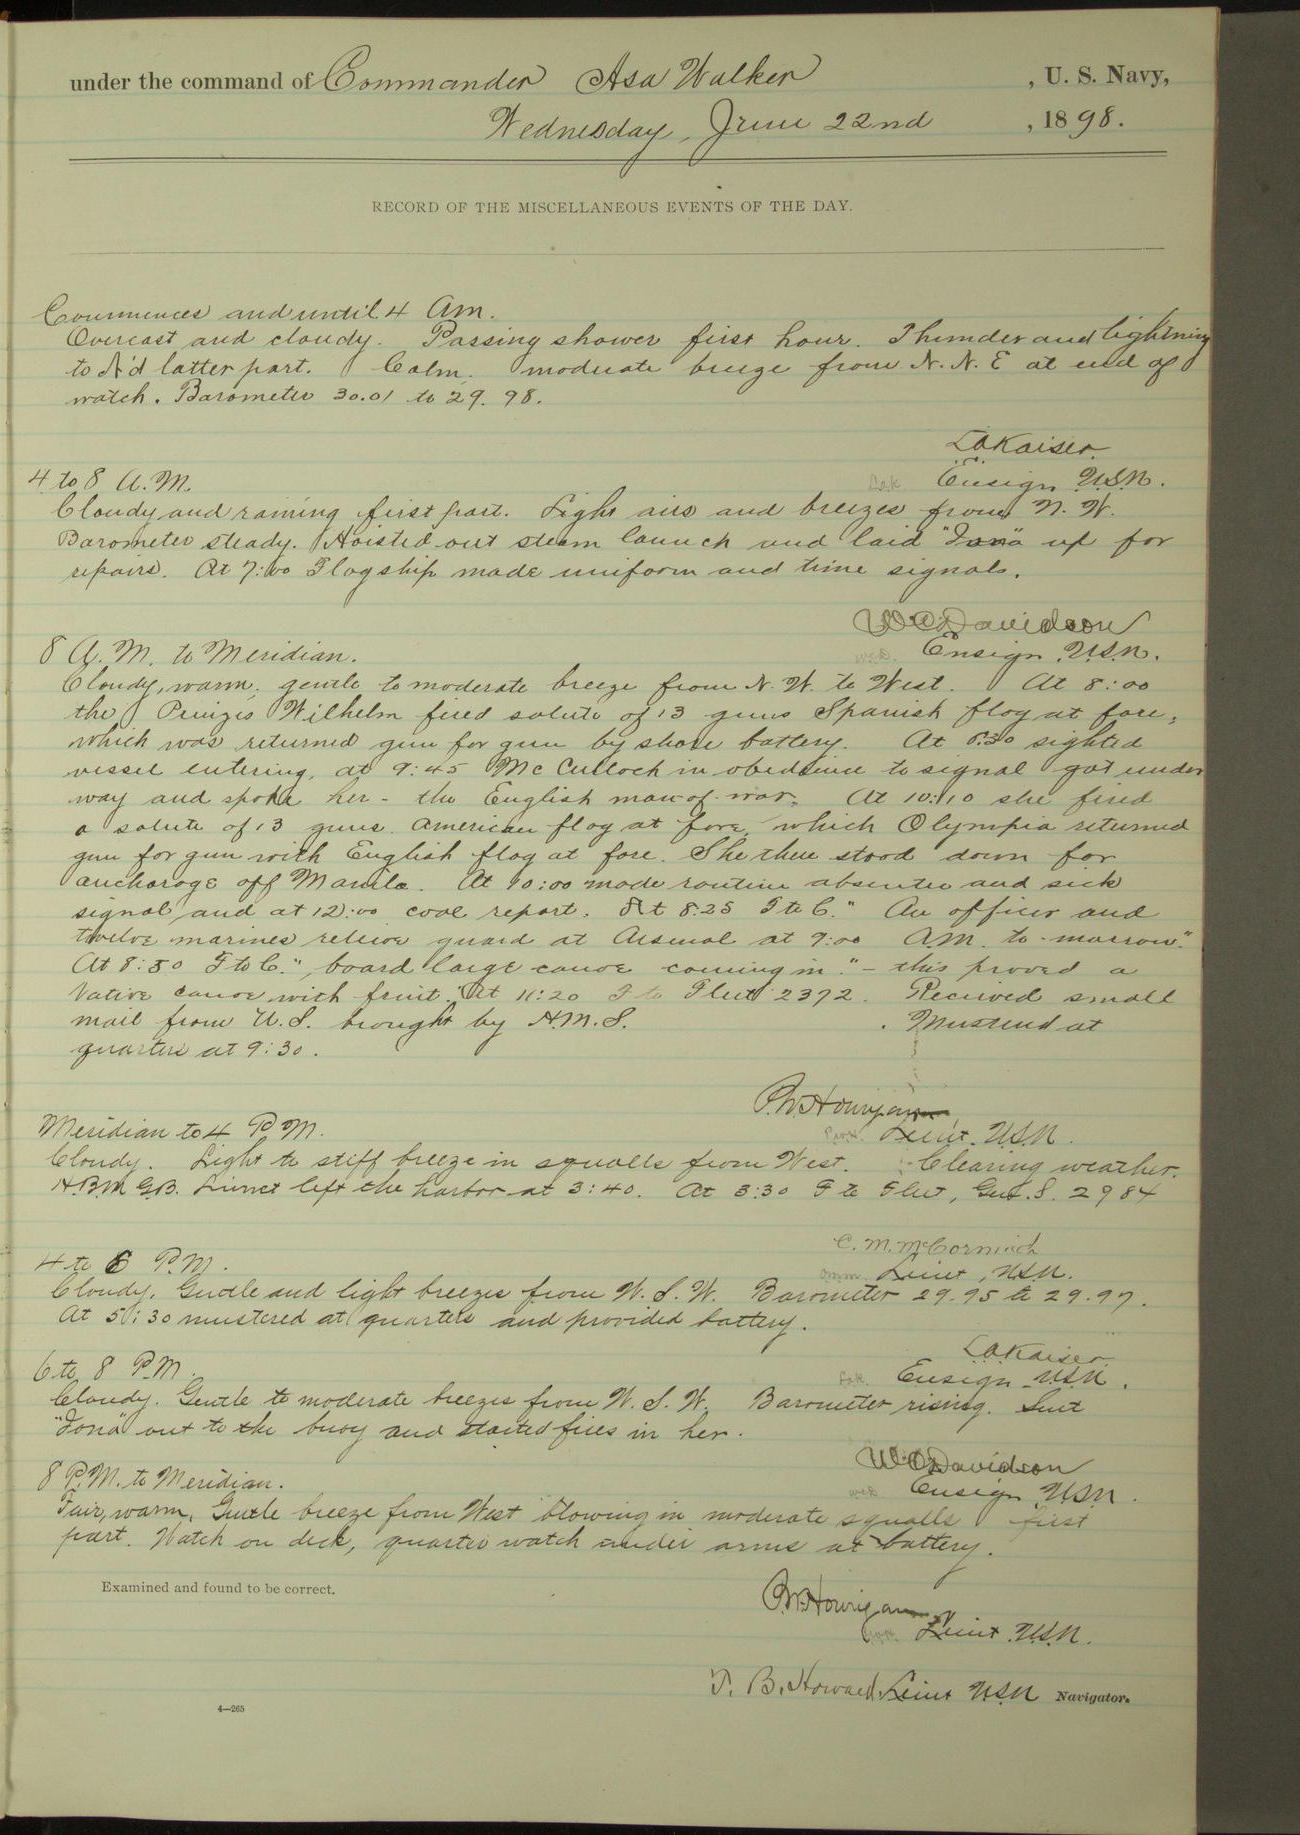 under the command of Commander Asa Walker, U. S. Navy,
Wednesday, June 22nd, 1898.
RECORD OF THE MISCELLANEOUS EVENTS OF THE DAY.
Commences and until 4 Am.
Overcast and cloudy. Passing shower first hour. Thunder and lightning
to N'd latter part. Calm. moderate breeze from N. N. E at end of
watch. Barometer 30.01 to 29.98.
LAKaiser
Ensign U.S.N.
4 to 8 A.M.
Cloudy and raining first part. Light airs and breezes from N. W.
Barometer steady. Hoisted out steam launch and laid "Iona" up for
repairs. At 7:00 Flagship made uniform and time signals.
WCDavidson
Ensign U.S.N.
8 A.M. to Meridian.
Cloudy, warm, gentle to moderate breeze from N. W. to West. At 8:00
the Prinzis Wilhelm fired salute of 13 guns Spanish flag at fore,
which was returned gun for gun by shore battery. At 8:30 sighted
vessel entering, at 9:45 McCulloch in obedience to signal got under
way and spoke her - the English man-of-war. At 10:10 she fired
a salute of 13 guns American flag at fore, which Olympia returned
gun for gun with English flag at fore. She then stood down for
anchorage off Manila. At 10:00 made routine absentee and sick
signal and at 12:00 coal report. At 8:25 F to C. "An officer and
twelve marines relieve guard at Arsenal at 9:00 AM. to-morrow."
At 8:50 F to C. "board large canoe coming in." - this proved a
Native canoe with fruit. At 11:20 F to Fleet 2372. Received small
mail from U.S. brought by H.M.S. . Mustered at
quarters at 9:30.
P.W.Hourigan
Lieut. U.S.N.
Meridian to 4 P.M.
Cloudy. Light to stiff breeze in squalls from West. Clearing weather.
H.B.M G.B. Linnet left the harbor at 3:40. At 3:30 F to Fleet, Gen. S. 2984
C. M. McCormick
Lieut, U.S.N.
4 to 6 P.M.
Cloudy. Gentle and light breezes from W. S. W. Barometer 29.95 to 29.97.
At 5:30 mustered at quarters and provided battery.
LAKaiser
Ensign U.S.N.
6 to 8 P.M.
Cloudy. Gentle to moderate breezes from W. S. W. Barometer rising. Sent
"Iona" out to the buoy and started fires in her.
WCDavidson
Ensign U.S.N.
8 P.M. to Meridian.
Fair, warm, Gentle breeze from West blowing in moderate squalls first
part. Watch on deck, quarter watch under arms at battery.
Examined and found to be correct.
P.W.Hourigan
Lieut U.S.N.
T. B. Howard. Lieut U.S.N Navigator.
4—265